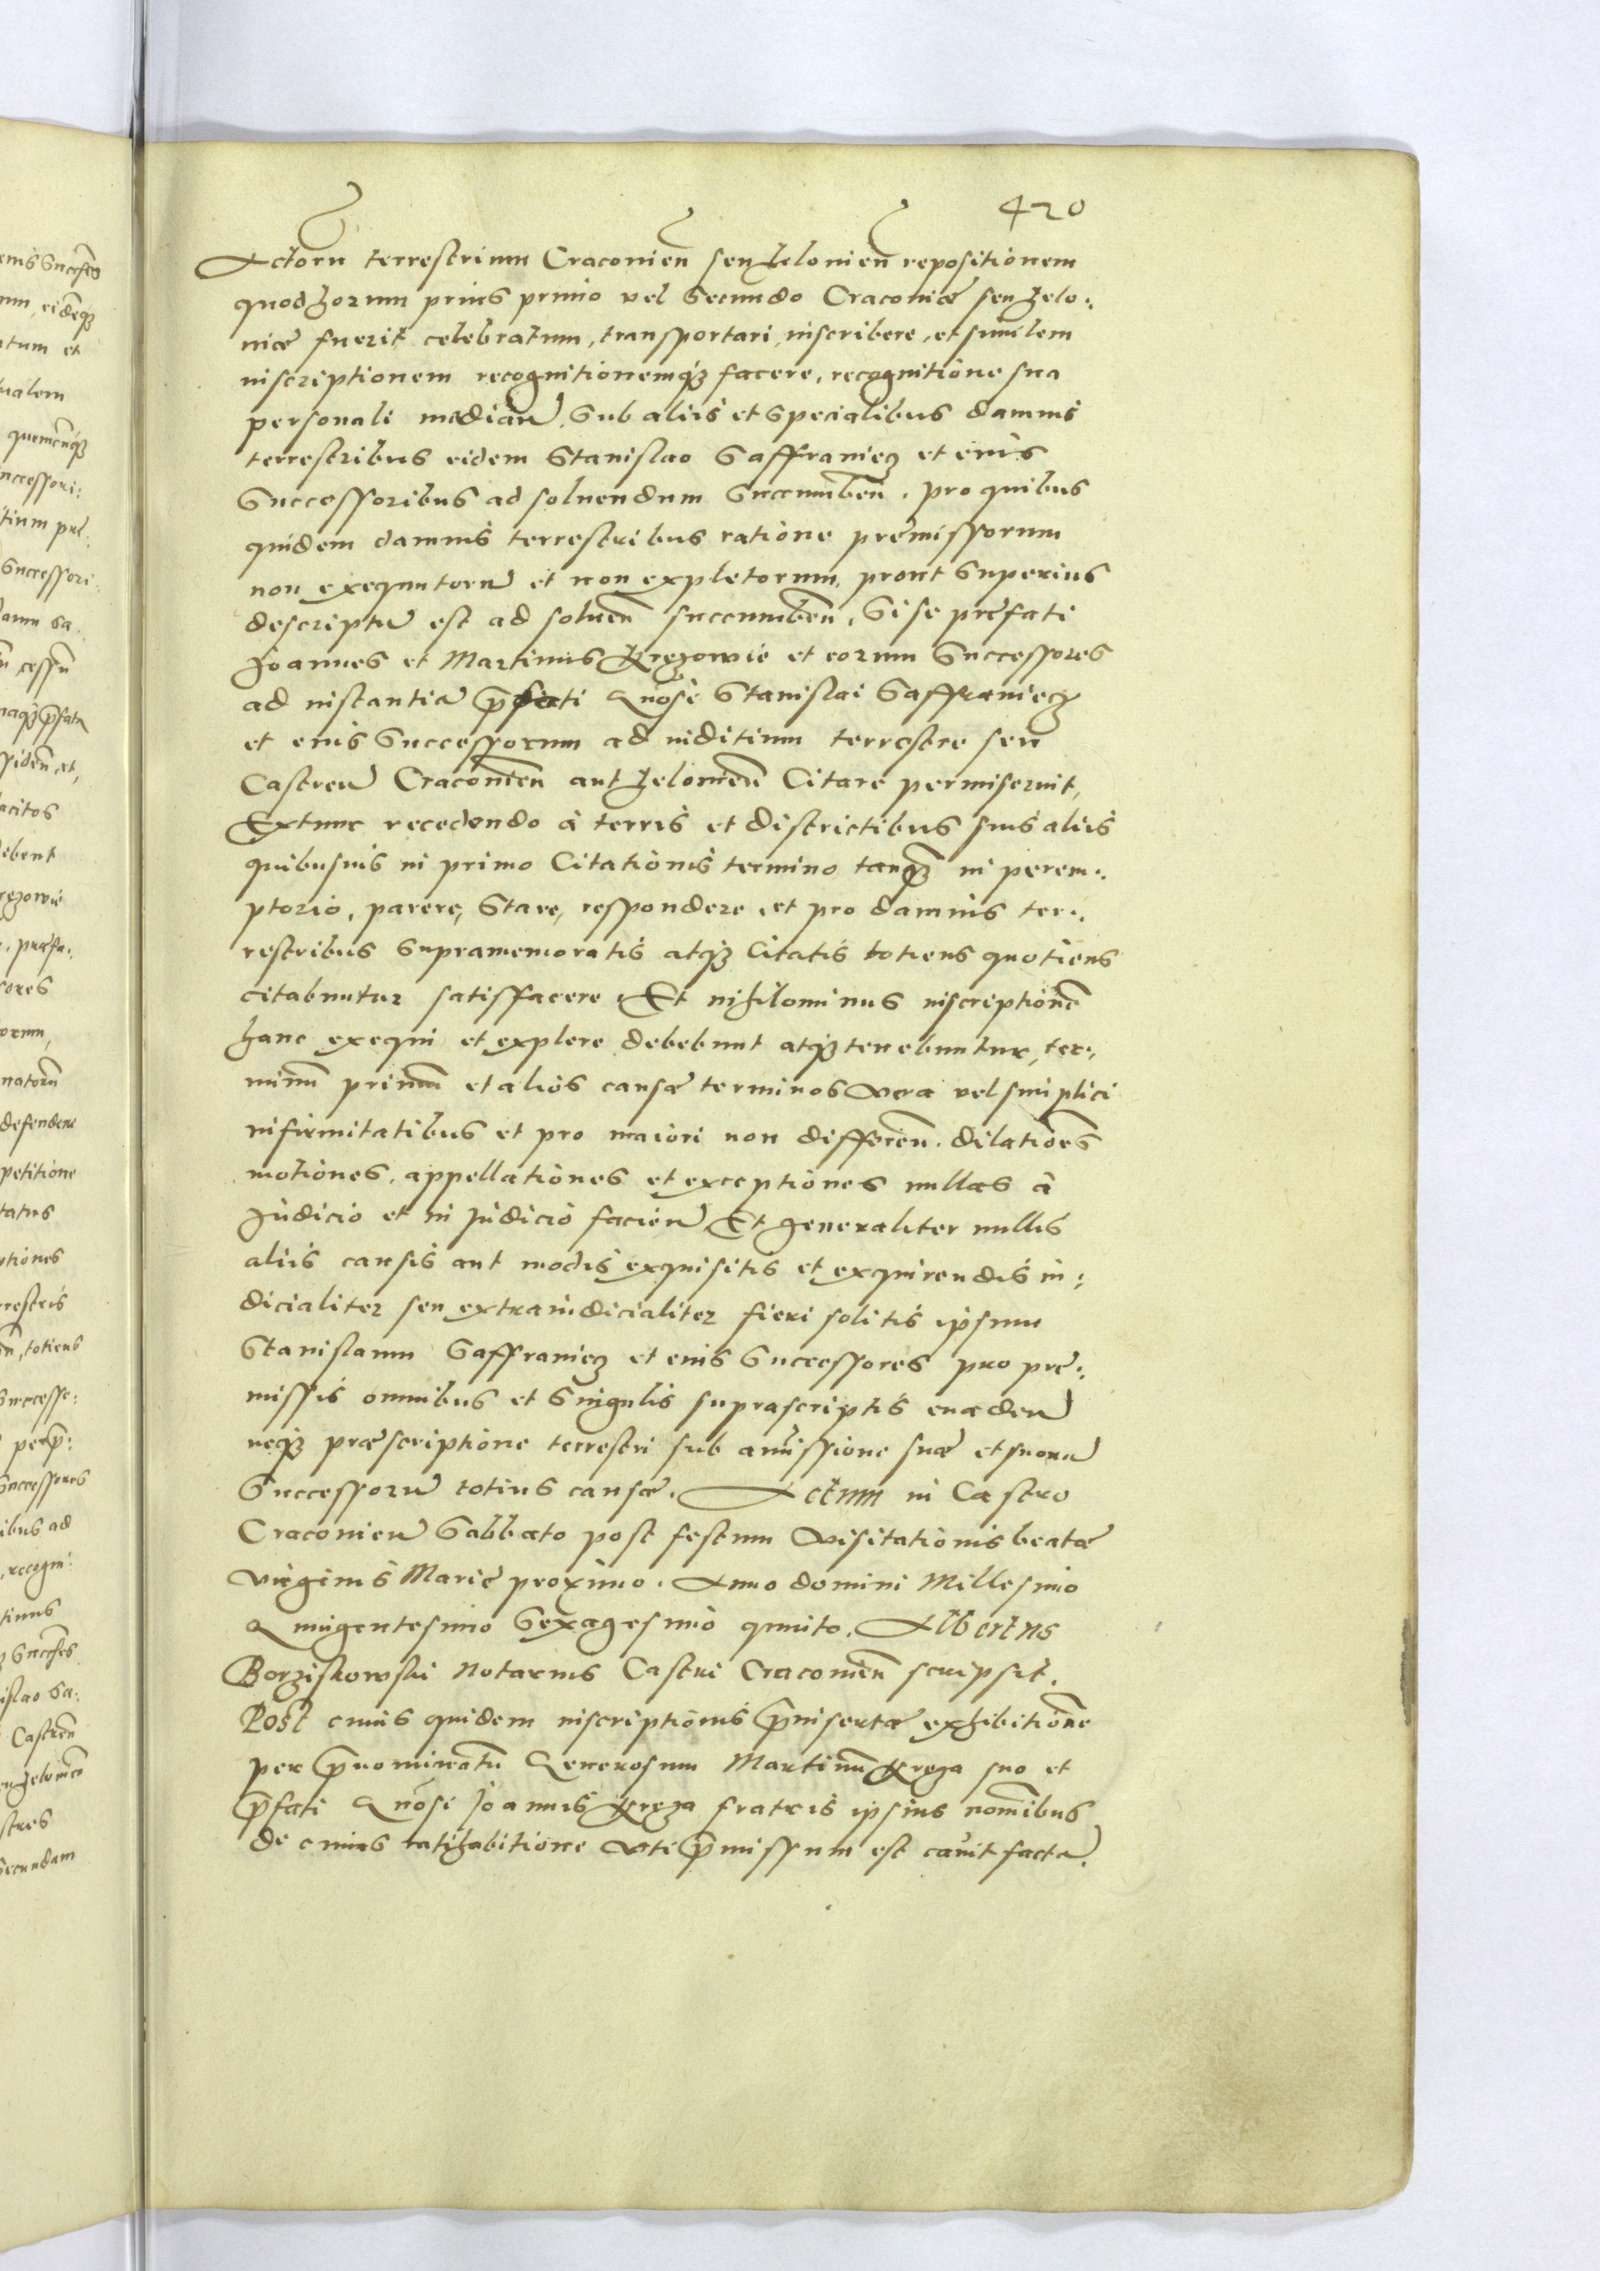 420
Actoru terrestrium Craconien seu Zelonien repositionem
quod horum prius primo vel Secundo Craconiæ seu Xelo:
niæ fuerit celebratum, transportari, inscribere, et similem
inscriptionem recognitionemqz facere, recognitione sua
personali median. Sub aliis et Specialibus damnis
terrestribus eidem Stanislao Saffraniecz et eius
Successoribus ad soluendum Succumben. pro quibus
quidem damnis terrestribus ratione premissorum
non exequutoru et non expletorum, prout Superius
descriptu est ad soluen succumben, Si se prefati
Joannes et Martinus Krezowie et eorum Successores
ad instantia pfati Gnosi Stanislai Saffraniecz
et eius Successorum ad iuditium terrestre seu
Castren Craconien aut Xelonien Citare permiserint,
Extunc recedendo à terris et districtibus suis aliis
quibusuis in primo Citationis termino tanqz in perem:
ptorio, parere, Stare, respondere, et pro damnis ter:
restribus Supramemoratis atqz Citatis totiens quotiens
citabuntur satisfacere. Et nihilominus inscriptione
hanc exequi et explere debebunt atqz tenebuntur, ter:
minu primum et alios causæ terminos vera vel simplici
infirmitatibus et pro maiori non differen. dilationes
motiones, appellationes et exceptiones nullas à
Judicio et in Judicio facien Et generaliter nullis
aliis causis aut modis exquisitis et exquirendis iu:
dicialiter seu extraiudicialiter fieri solitis ipsum
Stanislaum Saffraniecz et eius Successores pro pre:
missis omnibus et Singulis suprascriptis euaden
neqz præscriptione terrestri sub amissione suæ et suoru
Successoru totius causæ. Actum in Castro
Craconien Sabbato post festum Visitationis beatæ
virginis Marie proximo. Anno domini Millesimo
Quingentesimo Sexagesimo quinto. Albertus
Borziskowski Notarius Castri Craconien scripsit.
Post cuius quidem inscriptionis pinsertæ exhibitione
per pnominatu Generosum Martinu Kreza suo et
pfati Gnosi Joannis Kreza fratris ipsius nominibus
de cuius ratihabitione vti pmissum est cauit facta.